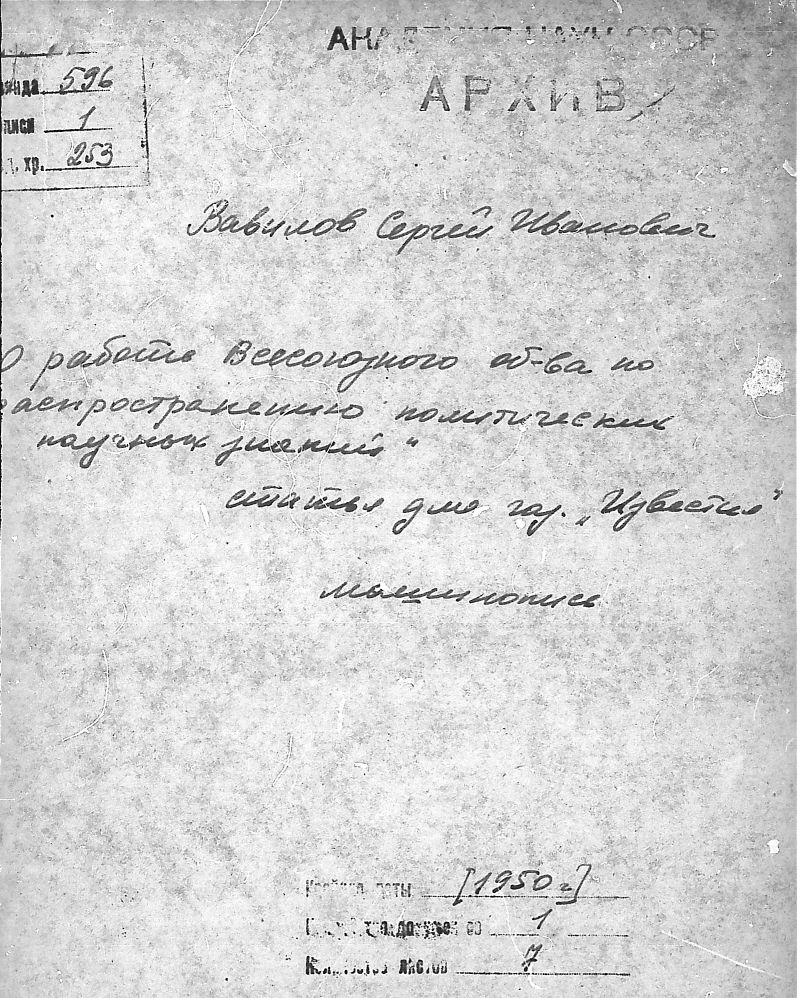 АКАДЕМИЯ НАУК СССР
АРХИВ
596
1
хр. 253
Вавилов Сергей Иванович
О работе Всесоюзного об-ва по
распространению политических
научных знаний"
статья для газ. „Известия"
машинопись
Крайние даты [1950 г.]
1
Количество листов 7